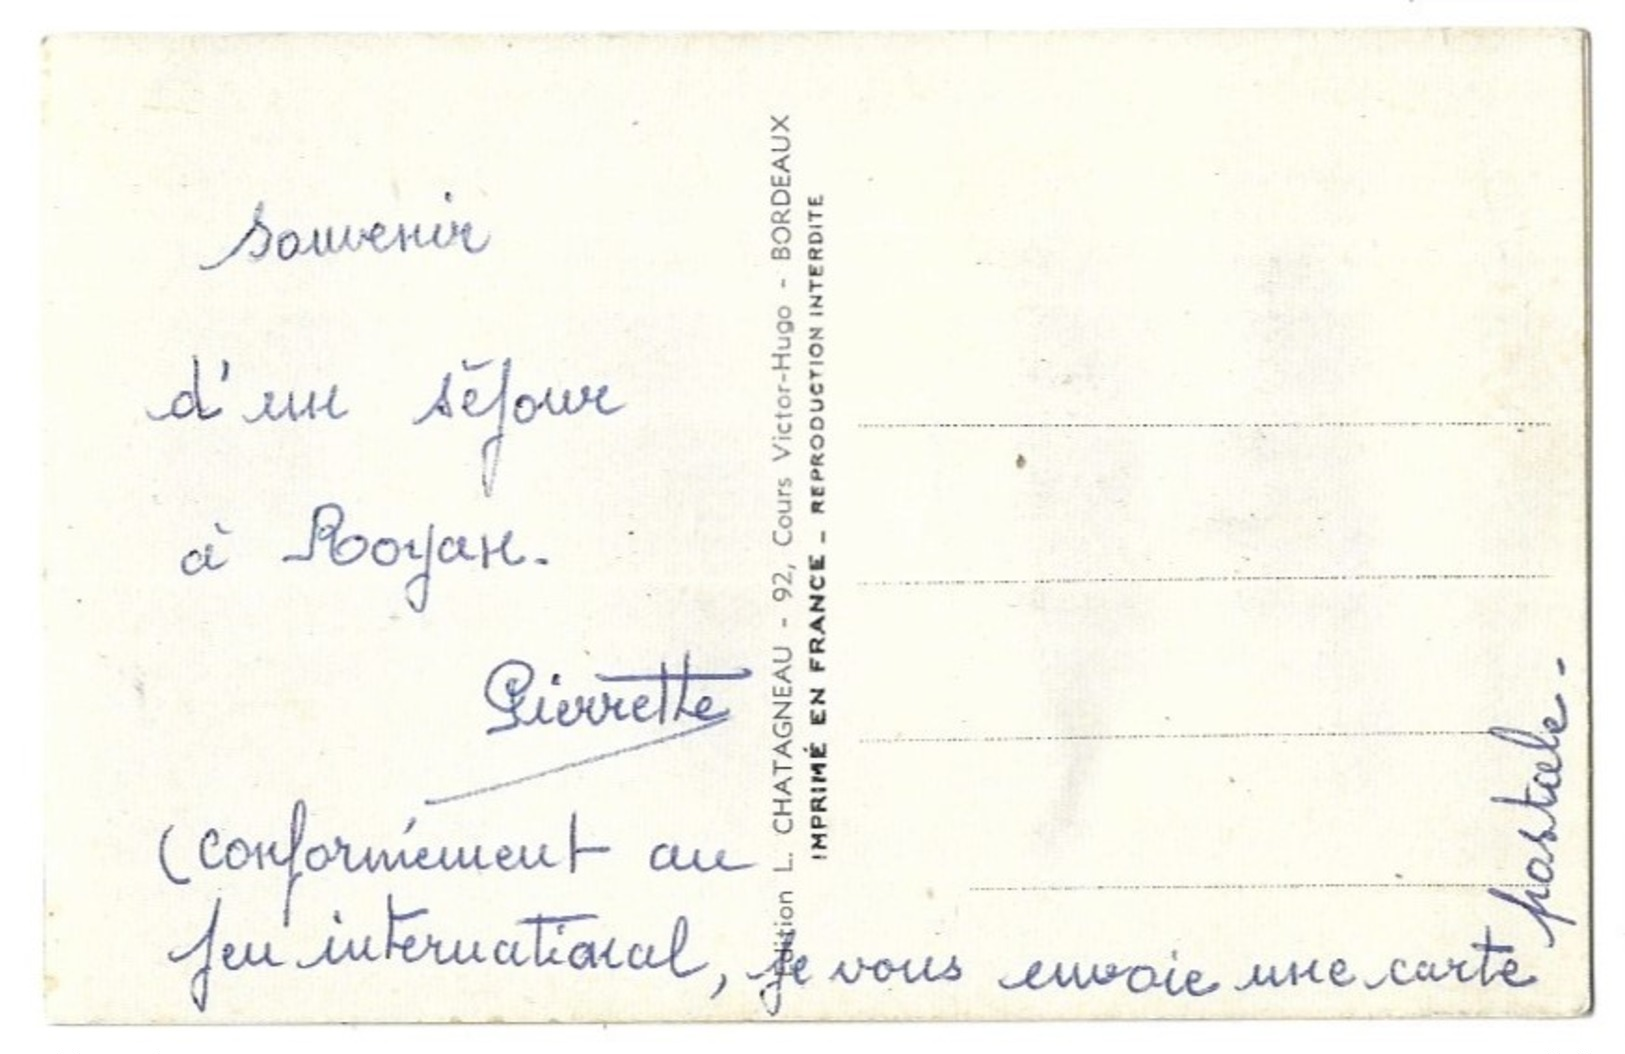 souvenir
d'un séjour
à Royan.
Pierrette
(conformément au
jeu international, je vous envoie une carte
postale.
Edition L. CHATAGNEAU - 92, Cours Victor-Hugo - BORDEAUX
IMPRIMÉ EN FRANCE - REPRODUCTION INTERDITE